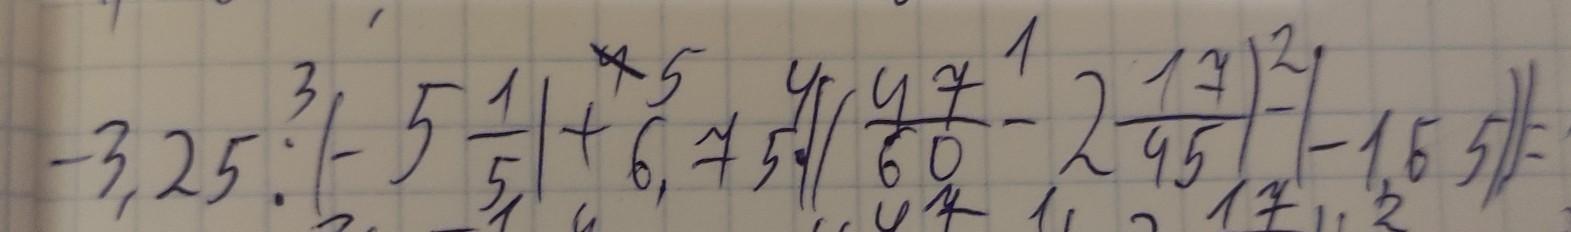 -3,25 : |-5 1/5| + 6,75 · ((47/60 - 2 17/45) - |-1,65|) =